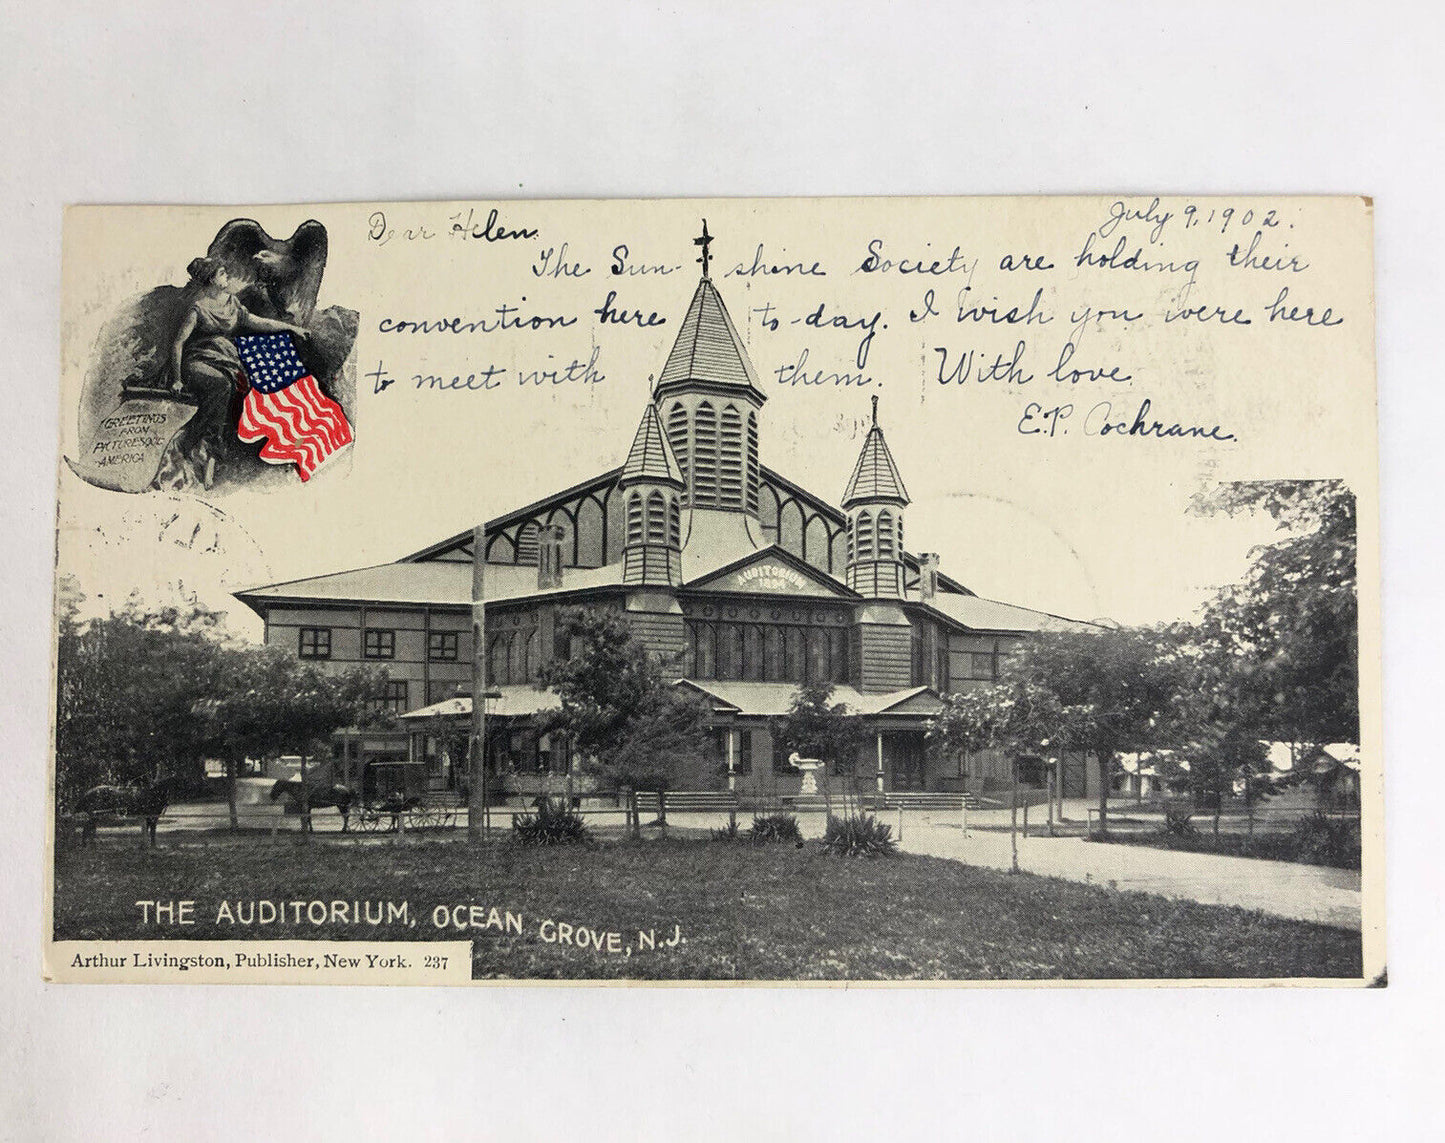 July 9, 1902.
Dear Helen.
The Sun-shine Society are holding their
convention here to-day. I wish you were here
to meet with them. With love
E.P. Cochrane.
GREETINGS
FROM
PICTURESQUE
AMERICA
AUDITORIUM
1894
THE AUDITORIUM, OCEAN GROVE, N.J.
Arthur Livingston, Publisher, New York. 237